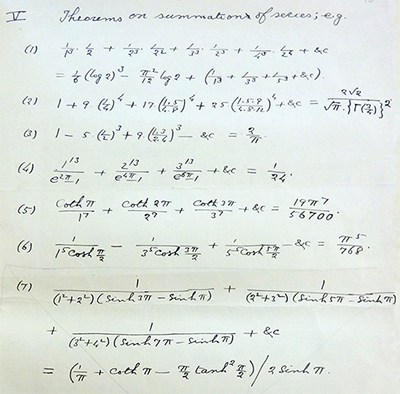 V Theorems on summation of series; e.g.
(1) 1/1³ · 1/2 + 1/2³ · 1/2² + 1/3³ · 1/2³ + 1/4³ · 1/2⁴ + &c
= 1/6 (log 2)³ − π²/12 log 2 + (1/1³ + 1/3³ + 1/5³ + &c).
(2) 1 + 9 (1/4)⁴ + 17 (1·5/4·8)⁴ + 25 (1·5·9/4·8·12)⁴ + &c = 2√2/(√π·{Γ(3/4)}²)
(3) 1 − 5 (1/2)³ + 9 (1·3/2·4)³ − &c = 2/π.
(4) 1¹³/(e^{2π}−1) + 2¹³/(e^{4π}−1) + 3¹³/(e^{6π}−1) + &c = 1/24.
(5) coth π/1⁷ + coth 2π/2⁷ + coth 3π/3⁷ + &c = 19π⁷/56700.
(6) 1/(1⁵ cosh π/2) − 1/(3⁵ cosh 3π/2) + 1/(5⁵ cosh 5π/2) − &c = π⁵/768.
(7) 1/((1²+2²)(Sinh 3π − Sinh π)) + 1/((2²+3²)(Sinh 5π − Sinh π))
+ 1/((3²+4²)(Sinh 7π − Sinh π)) + &c
= (1/π + coth π − π/2 tanh² π/2) / 2 Sinh π.